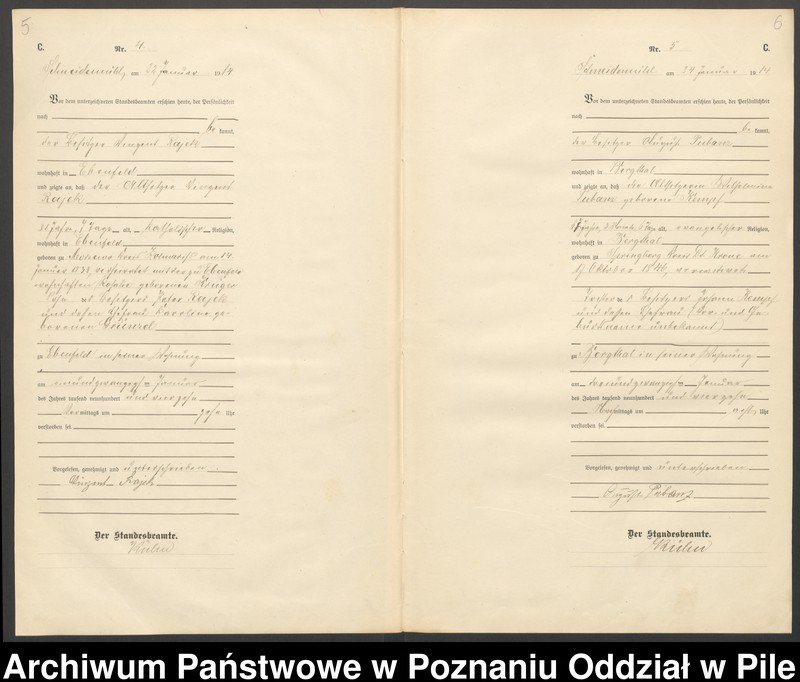 5
C.
Nr. 4
Schneidemühl, am 22 Januar 1914
Vor dem unterzeichneten Standesbeamten erschien heute, der Persönlichkeit
nach
be kannt,
der Besitzer Vinzent Rajek
wohnhaft in Ebenfeld
und zeigte an, daß der Altsitzer Vinzent
Rajek
81 Jahr, 7 Tage alt, katholischer Religion,
wohnhaft in Ebenfeld
geboren zu Kreis am 14.
Januar 1833, verheiratet mit der zu Ebenfeld
wohnhaften Rosalie geborenen
Sohn des Besitzers Peter Rajek
und dessen Ehefrau Karoline ge-
borenen
zu Ebenfeld in seiner Wohnung
am einundzwanzigsten Januar
des Jahres tausend neunhundert und vierzehn
Vormittags um zehn Uhr
verstorben sei.
Vorgelesen, genehmigt und unterschrieben
Vinzent Rajek
Der Standesbeamte.
6
Nr. 5
C.
Schneidemühl am 24 Januar 1914
Vor dem unterzeichneten Standesbeamten erschien heute, der Persönlichkeit
nach
be kannt,
der Besitzer August
wohnhaft in Bergthal
und zeigte an, daß die Altsitzerin Wilhelmine
geborene Kempf
67 Jahre, 3 Monate, 6 Tage alt, evangelischer Religion,
wohnhaft in Bergthal
geboren zu Springberg Kreis Dt Krone am
17 Oktober 1846, verwitwet
Tochter des Besitzers Johann Kempf
und dessen Ehefrau (Vor- und Ge-
burtsname unbekannt)
zu Bergthal in seiner Wohnung
am dreiundzwanzigsten Januar
des Jahres tausend neunhundert und vierzehn
mittags um acht Uhr
verstorben sei.
Vorgelesen, genehmigt und unterschrieben
August
Der Standesbeamte.
Archiwum Państwowe w Poznaniu Oddział w Pile